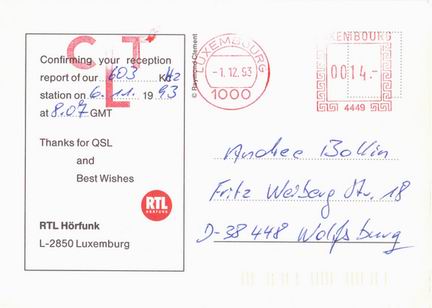 CLT
Confirming your reception
report of our 603 KHz
station on 6.11. 1993
at 8.07 GMT
Thanks for QSL
and
Best Wishes
RTL
HÖRFUNK
RTL Hörfunk
L-2850 Luxemburg
© Raymond Clement
LUXEMBOURG
-1.12.93
1000
LUXEMBOURG
0014.-
4449
Andree Bollin
Fritz Weiberg Str. 18
D-38448 Wolfsburg